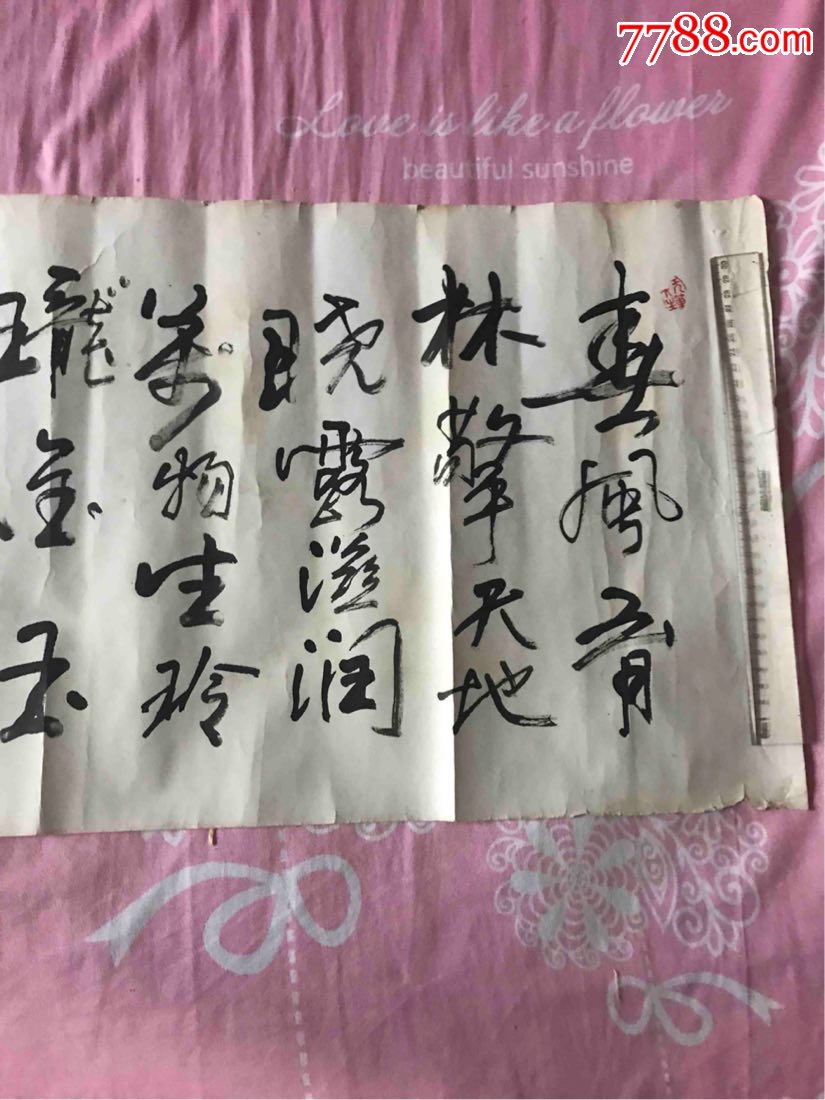 7788.com
Love is like a flower
beautiful sunshine
春風育
林擎天地
晓露滋润
萬物生玲
瓏金玉